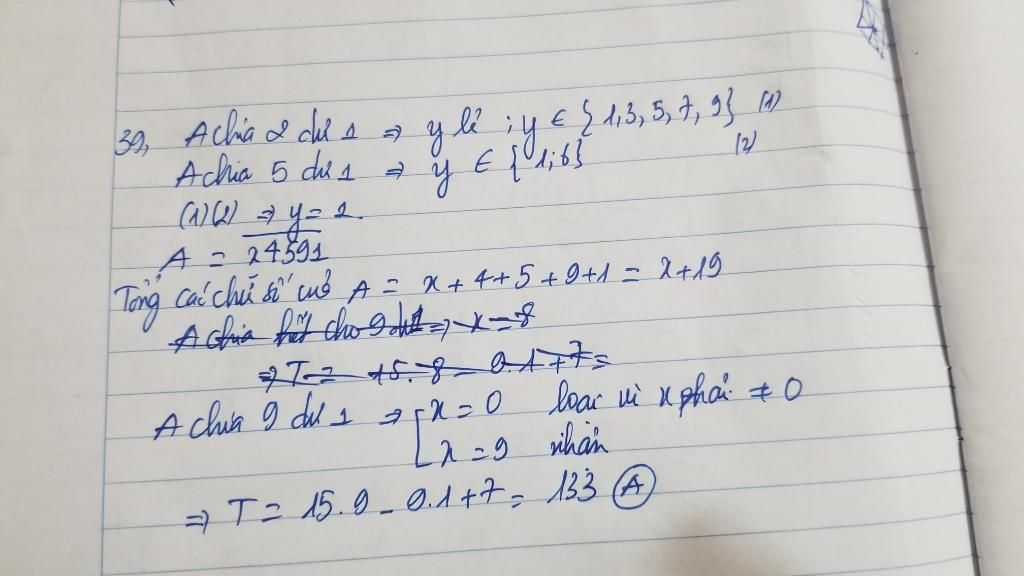 39, A chia 2 dư 1 ⇒ y lẻ ; y ∈ {1,3,5,7,9} (1)
A chia 5 dư 1 ⇒ y ∈ {1;6} (2)
(1)(2) ⇒ y = 1.
A = x4591
Tổng các chữ số của A = x + 4+5+9+1 = x+19
A chia hết cho 9 dư 1 ⇒ x = 8
⇒ T = 15.8 - 9.1+7 =
A chia 9 dư 1 ⇒ [ x = 0 loại vì x phải ≠ 0
x = 9 nhận
⇒ T = 15.9 - 9.1+7 = 133 A